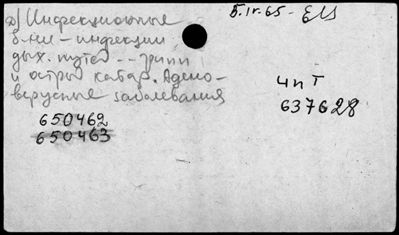 5.IV-65-
д) Инфекционные
б-ни - инфекции
дых. путей -- грипп
и острый катар. Адено-
вирусные заболевания
чпТ
637628
650462
650463